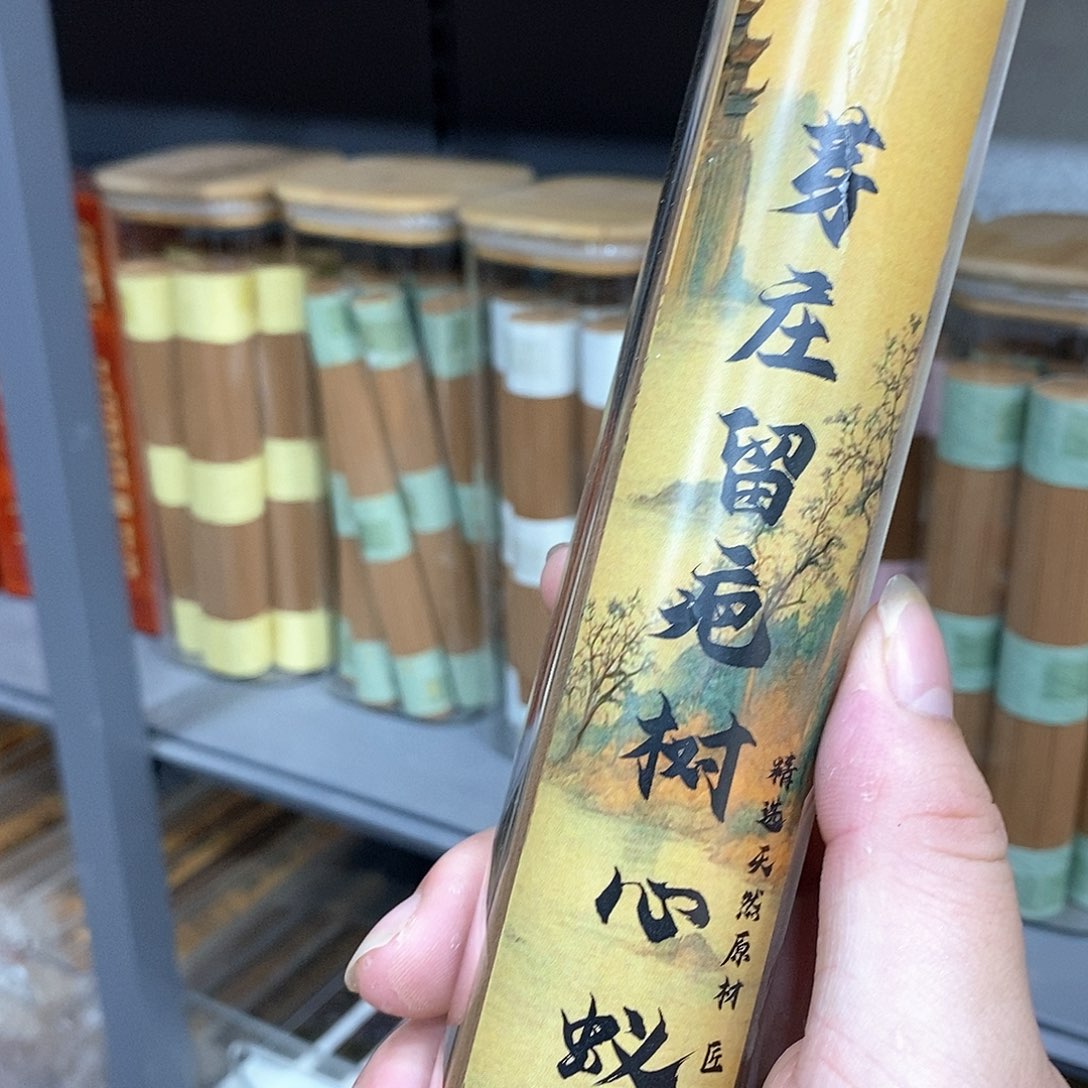 芽庄留疤树心蚁
精选天然原材 匠